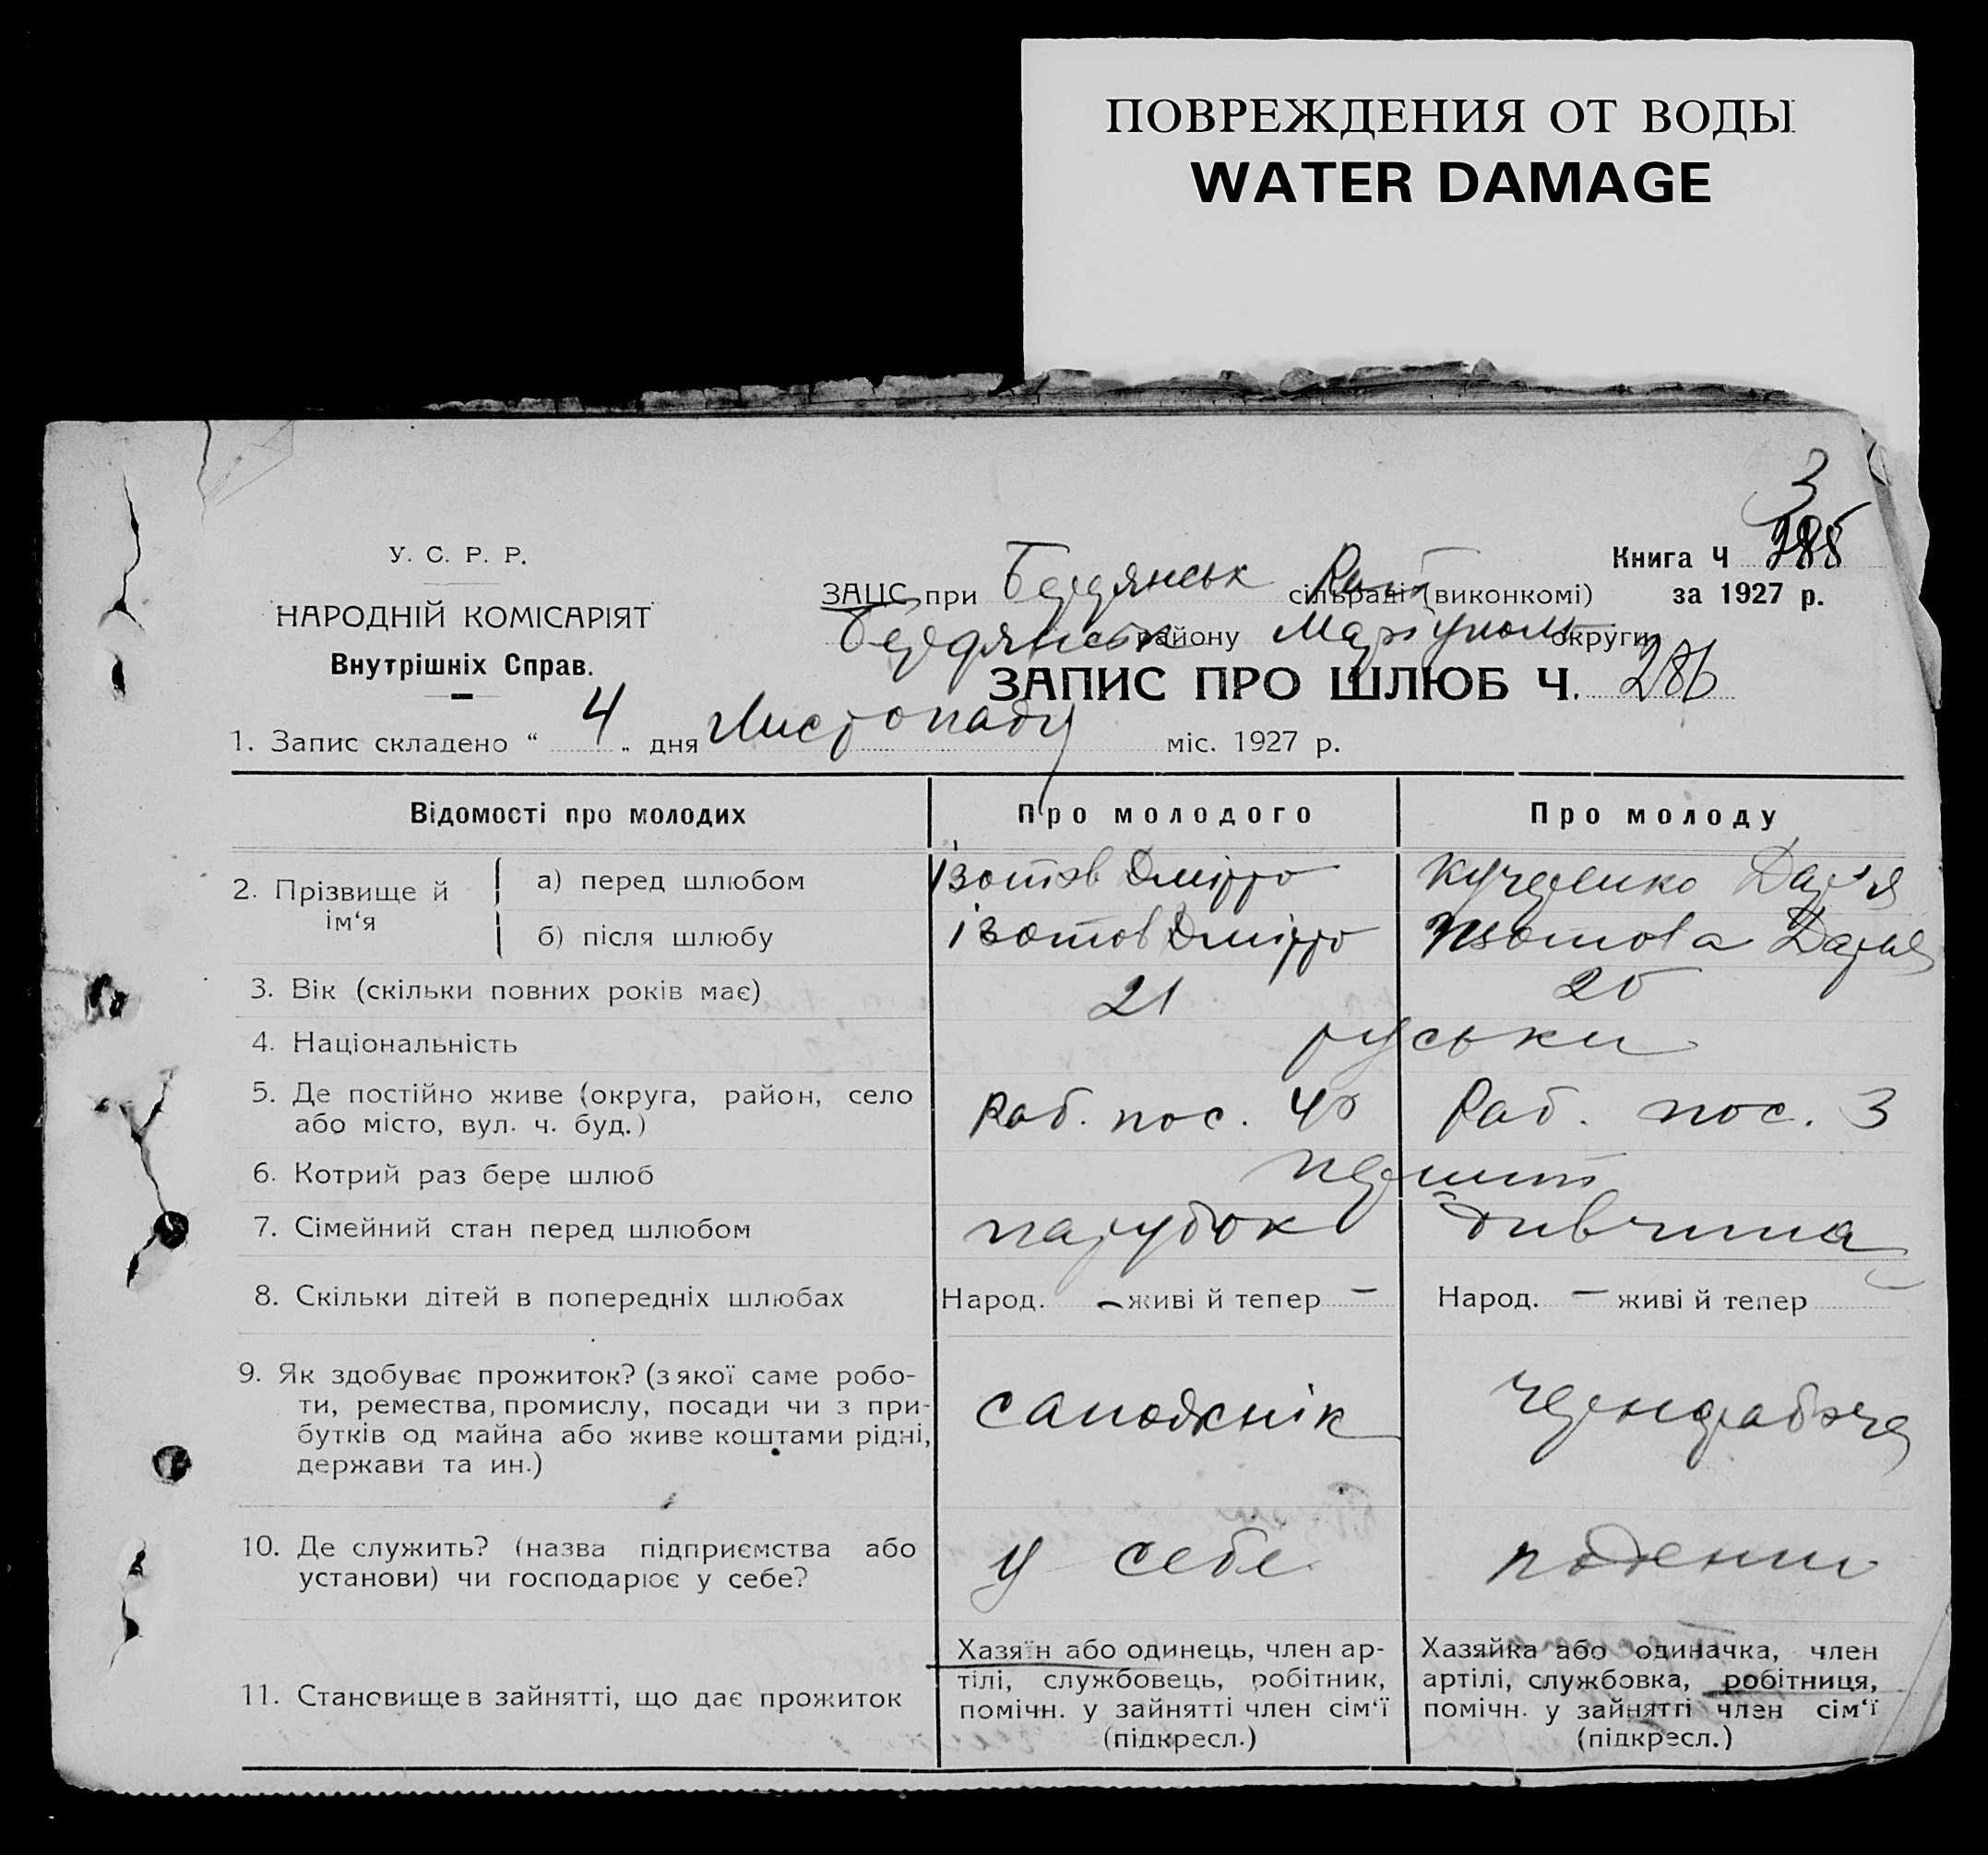 ПОВРЕЖДЕНИЯ ОТ ВОДЫ
WATER DAMAGE
3
У. С. Р. Р.
НАРОДНІЙ КОМІСАРІЯТ
Внутрішніх Справ.
Книга Ч
ЗАЦС при Бердянськ сільраді (виконкомі) за 1927 р.
Бердянськ району Маріуполь округи
ЗАПИС ПРО ШЛЮБ Ч. 286
1. Запис складено “ 4 „ дня Листопаду міс. 1927 р.
Відомості про молодих Про молодого Про молоду
2. Прізвище й ім‘я а) перед шлюбом Ізотов Дмітро Кучеренко Дар'я
б) після шлюбу Ізотов Дмітро Изотова Дарья
3. Вік (скільки повних років має) 21 20
4. Національність руськи
5. Де постійно живе (округа, район, село
або місто, вул. ч. буд.) Раб. пос. Раб. пос. 3
6. Котрий раз бере шлюб перший
7. Сімейний стан перед шлюбом парубок дивчина
8. Скільки дітей в попередніх шлюбах Народ. — живі й тепер — Народ. — живі й тепер
9. Як здобуває прожиток? (з якої саме робо-
ти, ремества, промислу, посади чи з при-
бутків од майна або живе коштами рідні,
держави та ин.) сапожнік чернорабоча
10. Де служить? (назва підприємства або
установи) чи господарює у себе? у себе
11. Становище в зайнятті, що дає прожиток
Хазяїн або одинець, член ар-
тілі, службовець, робітник,
помічн. у зайнятті член сім‘ї
(підкресл.)
Хазяйка або одиначка, член
артілі, службовка, робітниця,
помічн. у зайнятті член сім‘ї
(підкресл.)